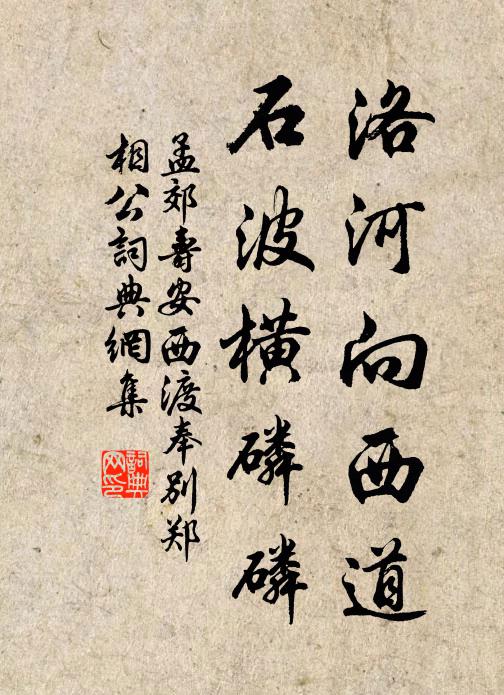 洛河向西道
石波横磷磷
孟郊壽安西渡奉别郑
相公詞典網集
詞典网印